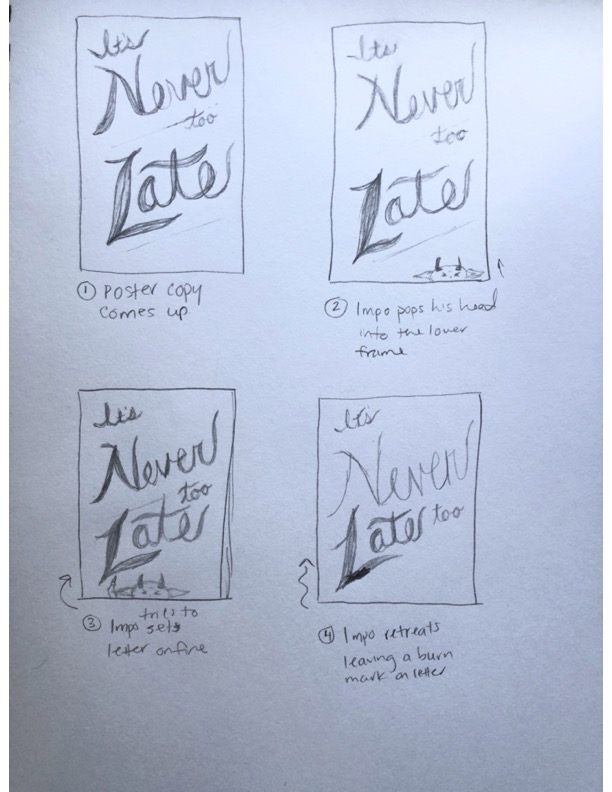 It's
Never
too
Late
① Poster copy
comes up
It's
Never
too
Late
② Impo pops his head
into the lower
frame
It's
Never
too
Late
tries to
③ Impo sets
letter on fire
It's
Never
Late too
④ Impo retreats
leaving a burn
mark on letter